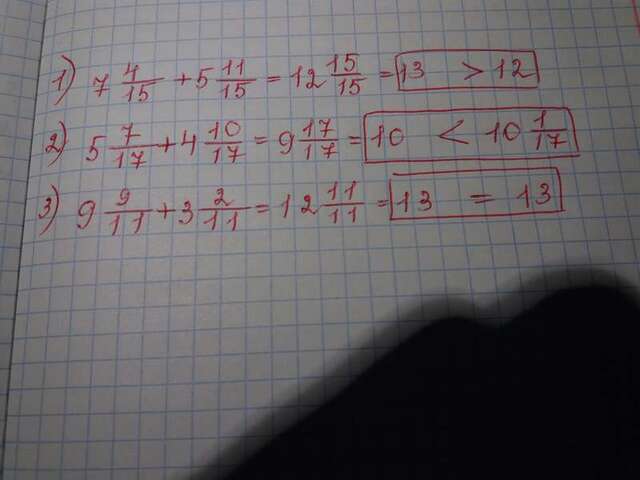 1) 7 4/15 + 5 11/15 = 12 15/15 = 13 > 12
2) 5 7/17 + 4 10/17 = 9 17/17 = 10 < 10 1/17
3) 9 9/11 + 3 2/11 = 12 11/11 = 13 = 13